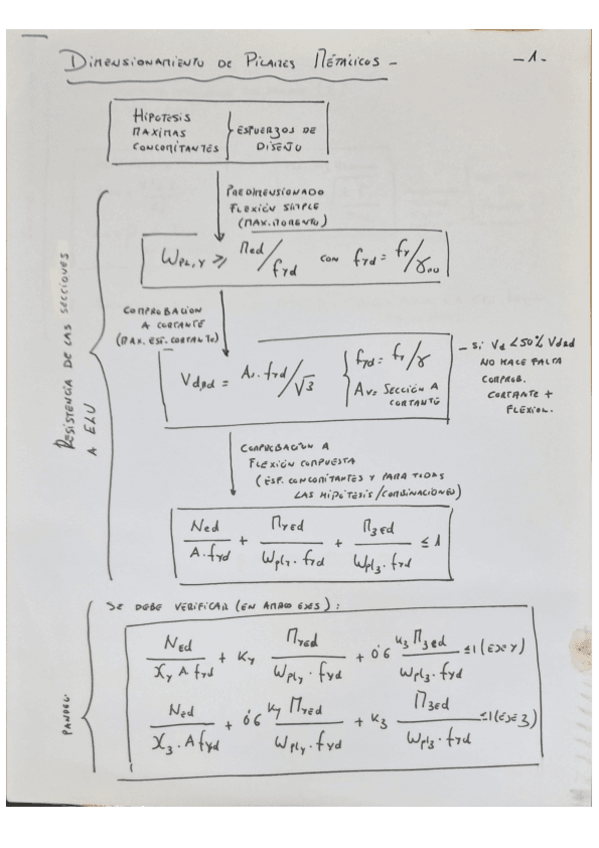 DIMENSIONAMIENTO DE PILARES METÁLICOS - -1-
HIPOTESIS
MAXIMAS
CONCOMITANTES
ESFUERZOS DE
DISEÑO
PREDIMENSIONADO
FLEXIÓN SIMPLE
(MAX. MOMENTO)
Wpl,y ≥ Med/fyd con fyd = fy/γM0
COMPROBACION
A CORTANTE
(MAX. ESF. CORTANTE)
Vd,Rd = Av·fyd/√3
fyd = fy/γ
Av = SECCIÓN A
CORTANTE
- Si Vd < 50% VdRd
NO HACE FALTA
COMPROB.
CORTANTE +
FLEXION.
RESISTENCIA DE LAS SECCIONES
A ELU
COMPROBACION A
FLEXIÓN COMPUESTA
(ESF. CONCOMITANTES Y PARA TODAS
LAS HIPÓTESIS/COMBINACIONES)
Ned/A·fyd + MyEd/Wply·fyd + MzEd/Wplz·fyd ≤ 1
SE DEBE VERIFICAR (EN AMBOS EJES):
NEd/χy A·fyd + Ky MyEd/Wply·fyd + 0'6 Kz MzEd/Wplz·fyd ≤ 1 (EJE Y)
Ned/χz·A fyd + 0'6 Ky MyEd/Wply·fyd + Kz MzEd/Wplz·fyd ≤ 1 (EJE z)
PANDEO